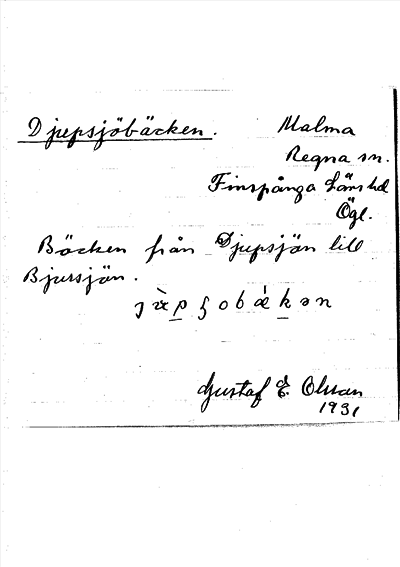 Djupsjöbäcken.
Malma
Regna sn.
Finspånga Läns hd
Ögl.
Bäcken från Djupsjön till
Bjursjön.
Gustaf E. Olsson
1931